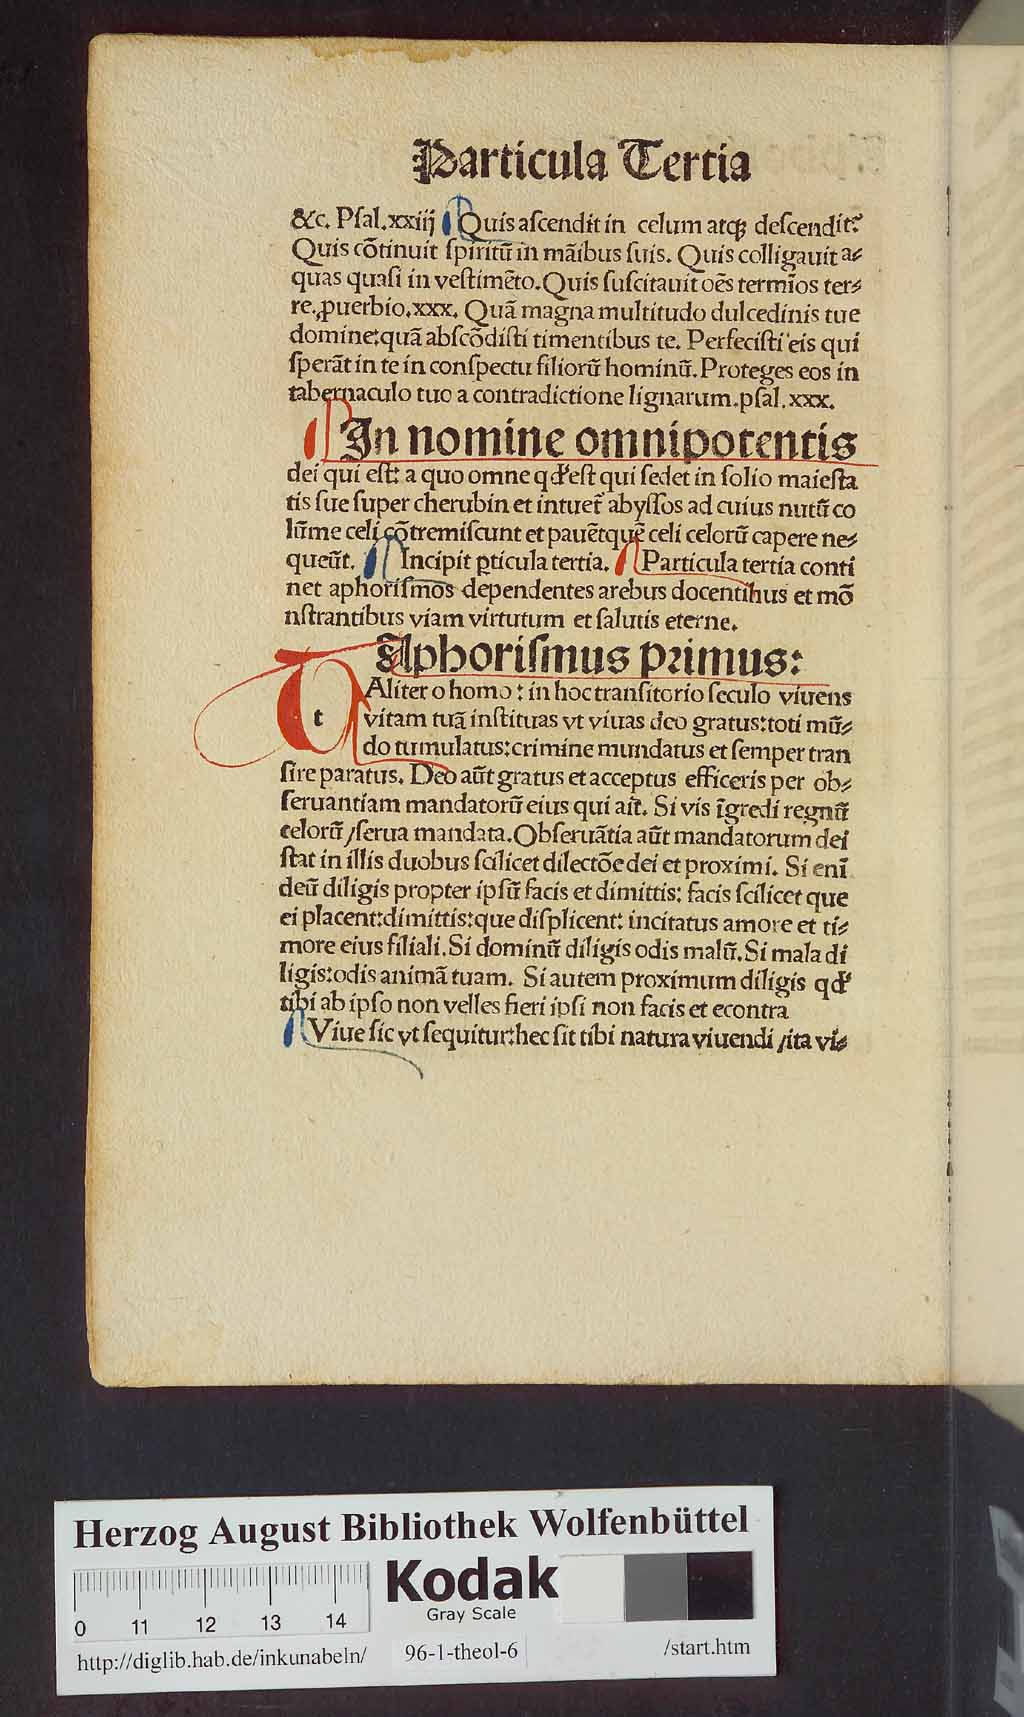 Particula Tertia
&c. Pſal.xxiij Quis aſcendit in celum atqꝫ deſcendit?
Quis cōtinuit ſpiritū in māibus ſuis. Quis colligauit a⸗
quas quaſi in veſtimēto. Quis ſuſcitauit oēs termīos ter⸗
re. ꝓuerbio.xxx. Quā magna multitudo dulcedinis tue
domine:quā abſcōdiſti timentibus te. Perfeciſti eis qui
ſperāt in te in conſpectu filiorū hominū. Proteges eos in
tabernaculo tuo a contradictione lignarum.pſal.xxx.
In nomine omnipotentis
dei qui eſt: a quo omne qđ eſt qui ſedet in ſolio maieſta
tis ſue ſuper cherubin et intuet̄ abyſſos ad cuius nutū co
lūme celi cōtremiſcunt et pauētquē celi celorū capere ne⸗
queūt. Incipit ꝑticula tertia. Particula tertia conti
net aphoriſmos dependentes arebus docentibus et mō
nſtrantibus viam virtutum et ſalutis eterne.
Aphoriſmus primus:
t Aliter o homo : in hoc tranſitorio ſeculo viuens
vitam tuā inſtituas vt viuas deo gratus:toti mū⸗
do tumulatus:crimine mundatus et ſemper tran
ſire paratus. Deo aūt gratus et acceptus efficeris per ob⸗
ſeruantiam mandatorū eius qui ait. Si vis īgredi regnū
celorū /ſerua mandata. Obſeruātia aūt mandatorum dei
ſtat in illis duobus ſcilicet dilectōe dei et proximi. Si enī
deū diligis propter ipſū facis et dimittis: facis ſcilicet que
ei placent:dimittis:que diſplicent: incitatus amore et ti⸗
more eius filiali. Si dominū diligis odis malū. Si mala di
ligis:odis animā tuam. Si autem proximum diligis qđ
tibi ab ipſo non velles fieri ipſi non facis et econtra
Viue ſic vt ſequitur:hec ſit tibi natura viuendi /ita vi⸗
Herzog August Bibliothek Wolfenbüttel
Kodak
Gray Scale
0 11 12 13 14
http://diglib.hab.de/inkunabeln/ 96-1-theol-6 /start.htm